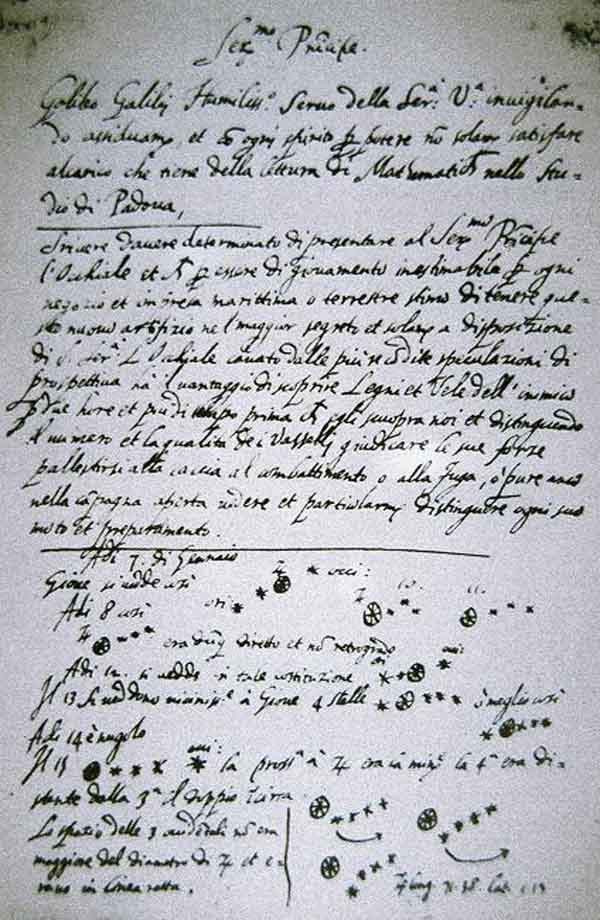 Ser.mo Principe.
Galileo Galilei Humiliss.o Servo della Ser.a V.a invigilan-
do assiduam.e, et cō ogni spirito p potere nō solam.e satisfare
alcarico che tiene della lettura di Mathematich nello Stu-
dio di Padova,
Scrivere d'avere determinato di presentare al Ser.mo Principe
l'Occhiale et p essere di giovamento inestimabile p ogni
negozio et impresa marittima o terrestre stimo di tenere que-
sto nuovo artifizio nel maggior segreto et solam.e a disposizione
di S. Ser.a L'Occhiale cavato dalle più recōdite speculazioni di
prospettiva ha il vantaggio di scoprire Legni et Vele dell'inimico
p due hore et più di tempo prima ch egli scuopra noi et distinguendo
il numero et la qualità dei Vasselli giudicare le sue forze
pallestirsi alla caccia al combattimento o alla fuga, o pure anco
nella cāpagna aperta vedere et particolarm.e distinguere ogni suo
moto et preparamento.
Adi 7. di Gennaio
Giove si vedde cosi ♃ occi:
Adi 8 cosi ori: ♃ 10. 11.
♃ era dūq diretto et nō retrogrado
Adi 12. si vedde in tale costituzione ori occi:
Il 13 si veddono vicinis.e à Giove 4 stelle è meglio cosi
Adi 14 è nugolo
Il 15 occi: la pross.a à ♃ era la min.e la 4.a era di-
stante dalla 3.a il doppio
Lo spazio delle 3 occidetali nō era
maggiore del diametro di ♃ et e-
rano in linea retta.
♃ long. 71. 38. Lat. 1. 13